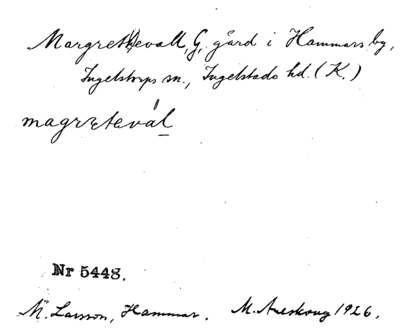 Margret(h)evall, G, gård i Hammars by,
Ingelstorps sn., Ingelstads hd. (K.)
magretevál
Nr 5448.
M. Larsson, Hammar. M. Areskoug 1926.